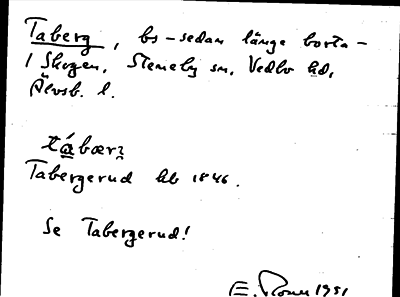 Taberg, bs – sedan länge borta –
I Skogen, Steneby sn, Vedbo hd,
Älvsb. l.
tábærʒ
Tabergerud hb 1846.
Se Tabergerud!
E. 1951